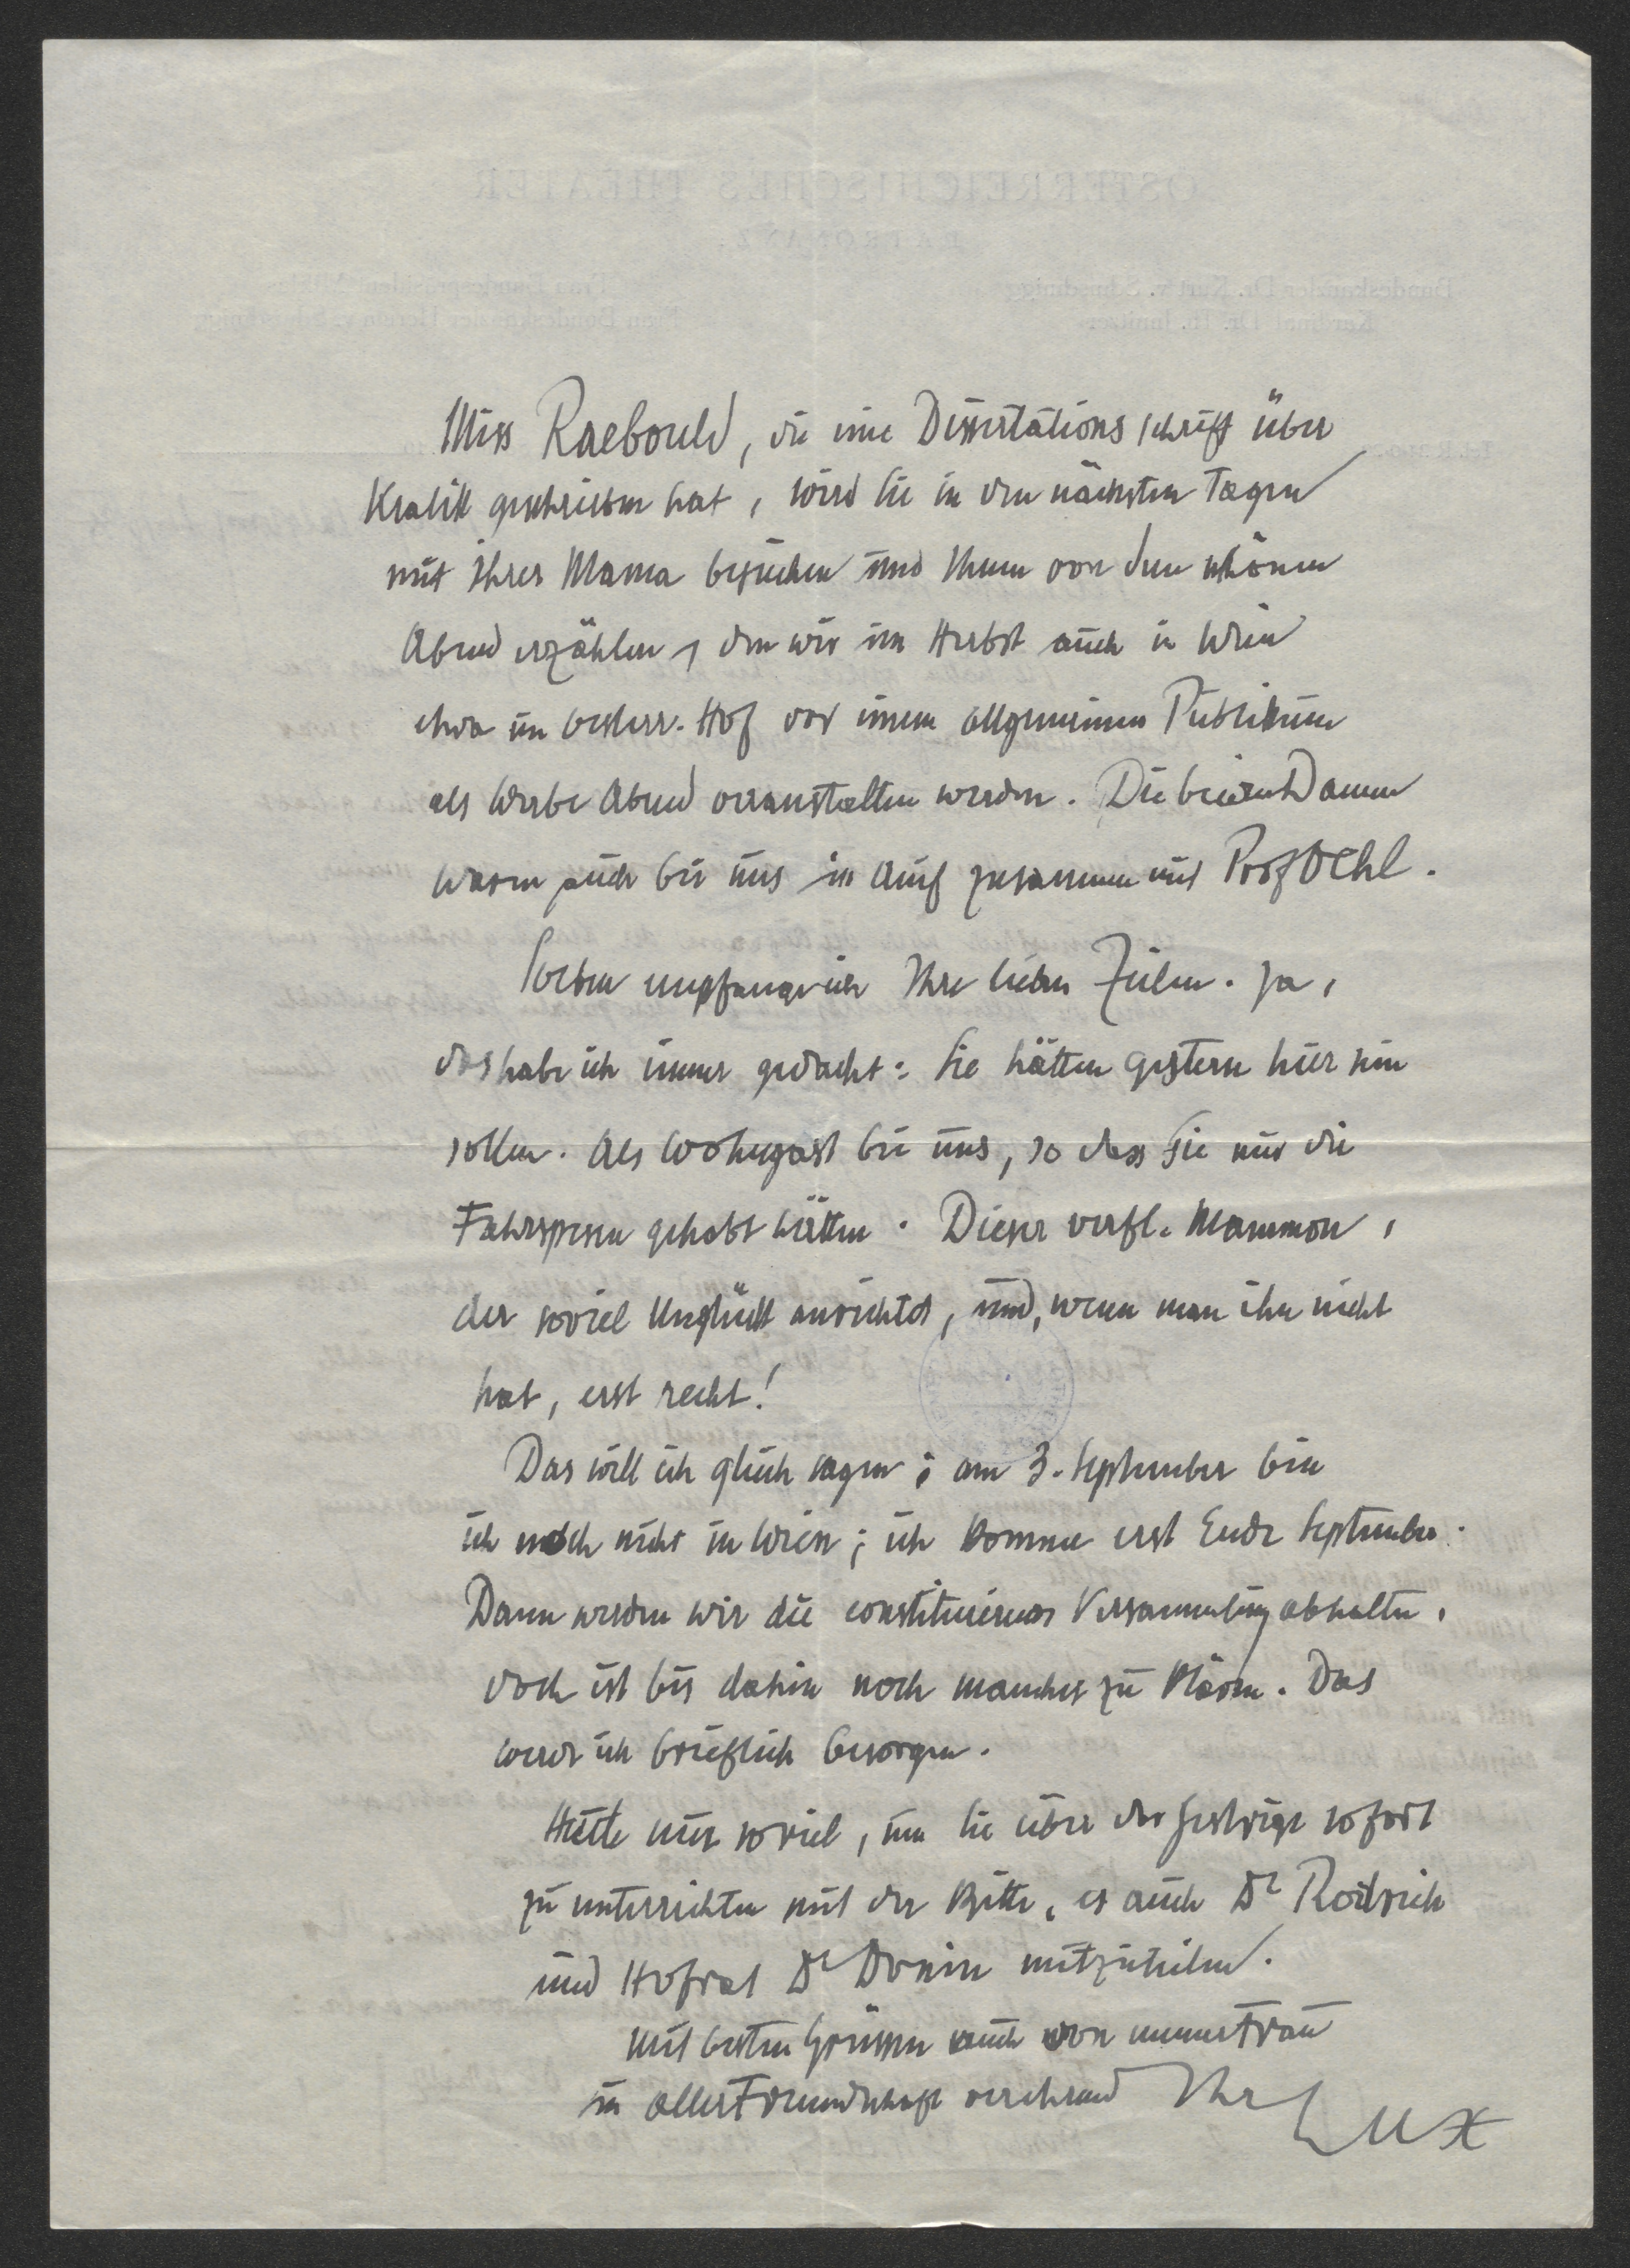 Miss Raebould, die eine Dissertationsschrift über
Kralik geschrieben hat, wird Sie in den nächsten Tagen
mit ihrer Mama besuchen und Ihnen von dem schönen
Abend erzählen, den wir im Herbst auch in Wien
etwa im oesterr. Hof vor einem allgemeinen Publikum
als Werbe Abend veranstalten werden. Die beiden Damen
waren auch bei uns in Anif zusammen mit Prof Oehl.
Soeben empfange ich Ihre lieben Zeilen. Ja,
das habe ich immer gedacht: Sie hätten gestern hier sein
sollen. Als Wohngast bei uns, so dass Sie nur die
Fahrspesen gehabt hätten. Dieser verfl. Mammon,
der soviel Unglück anrichtet, und, wenn man ihn nicht
hat, erst recht!
Das will ich gleich sagen: am 3. September bin
ich noch nicht in Wien; ich komme erst Ende September.
Dann werden wir die constituierende Versammlung abhalten,
doch ist bis dahin noch manches zu klären. Das
werde ich brieflich besorgen.
Heute nur soviel, um Sie über das Gestrige sofort
zu unterrichten mit der Bitte, es auch Dr Rodrich
und Hofrat Dr Donin mitzuteilen.
Mit besten Grüssen auch von meiner Frau
in aller Freundschaft verehrend Ihr Lux
ÖSTERREICHISCHES THEATER
Bundeskanzler Dr. Kurt v. Schuschnigg
Kardinal Dr. Th. Innitzer
Frau Bundespräsident Miklas
Frau Bundeskanzler Herma v. Schuschnigg